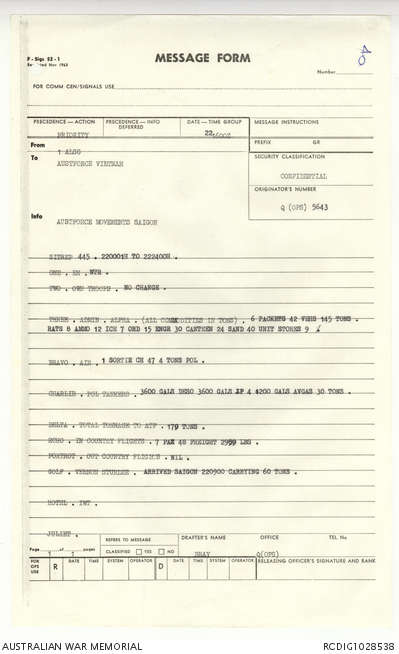 F - Sigs 52 - 1
Nov 1965
MESSAGE FORM
Number
FOR COMM CEN/SIGNALS USE
PRECEDENCE — ACTION
PRECEDENCE — INFO
DEFERRED
DATE — TIME GROUP
MESSAGE INSTRUCTIONS
PRIORITY
22
PREFIX
GR
From
1 ALSG
To
AUSTFORCE VIETNAM
SECURITY CLASSIFICATION
CONFIDENTIAL
ORIGINATOR'S NUMBER
Q (OPS) 5643
Info
AUSTFORCE MOVEMENTS SAIGON
SITREP 445 . 220001H TO 222400H .
ONE . EN . NTR .
TWO . OWN TROOPS . NO CHANGE .
THREE . ADMIN . ALPHA . (ALL COMMODITIES IN TONS) . 6 PACKETS 42 VEHS 145 TONS .
RATS 8 AMMO 12 ICE 7 ORD 15 ENGR 30 CANTEEN 24 SAND 40 UNIT STORES 9
BRAVO . AIR . 1 SORTIE CH 47 4 TONS POL .
CHARLIE . POL TANKERS . 3600 GALS DESO 3600 GALS JP 4 4200 GALS AVGAS 30 TONS .
DELTA . TOTAL TONNAGE TO ATF . 179 TONS .
ECHO . IN COUNTRY FLIGHTS . 7 PAX 48 FREIGHT 2999 LBS .
FOXTROT . OUT COUNTRY FLIGHTS . NIL .
GOLF . VERNON STURDEE . ARRIVED SAIGON 220900 CARRYING 60 TONS .
HOTEL . IWT .
JULIET .
Page 1 of 1 pages
REFERS TO MESSAGE
CLASSIFIED YES NO
DRAFTER'S NAME
BRAY
OFFICE
Q(OPS)
TEL No
FOR OPS USE
R
DATE
TIME
SYSTEM
OPERATOR
D
DATE
TIME
SYSTEM
OPERATOR
RELEASING OFFICER'S SIGNATURE AND RANK
AUSTRALIAN WAR MEMORIAL
RCDIG1028538